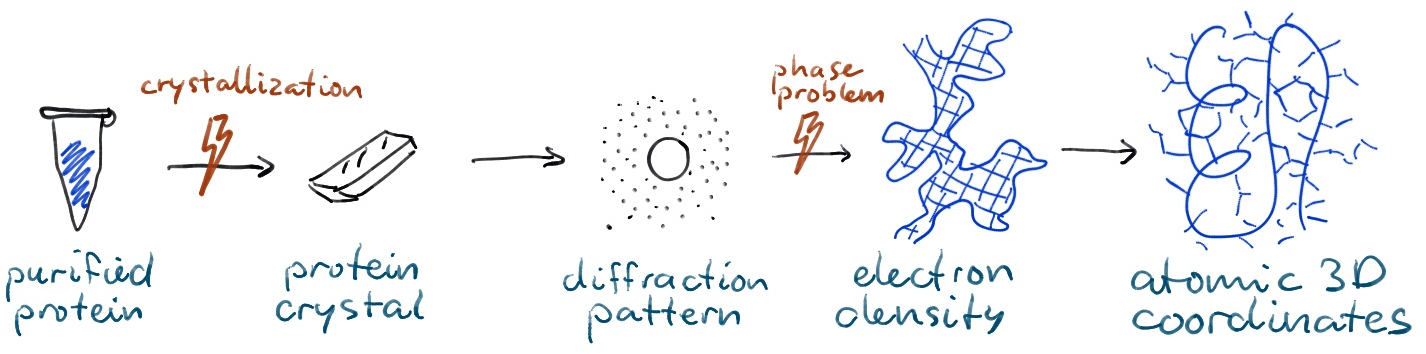 crystallization
phase
problem
purified
protein
protein
crystal
diffraction
pattern
electron
density
atomic 3D
coordinates